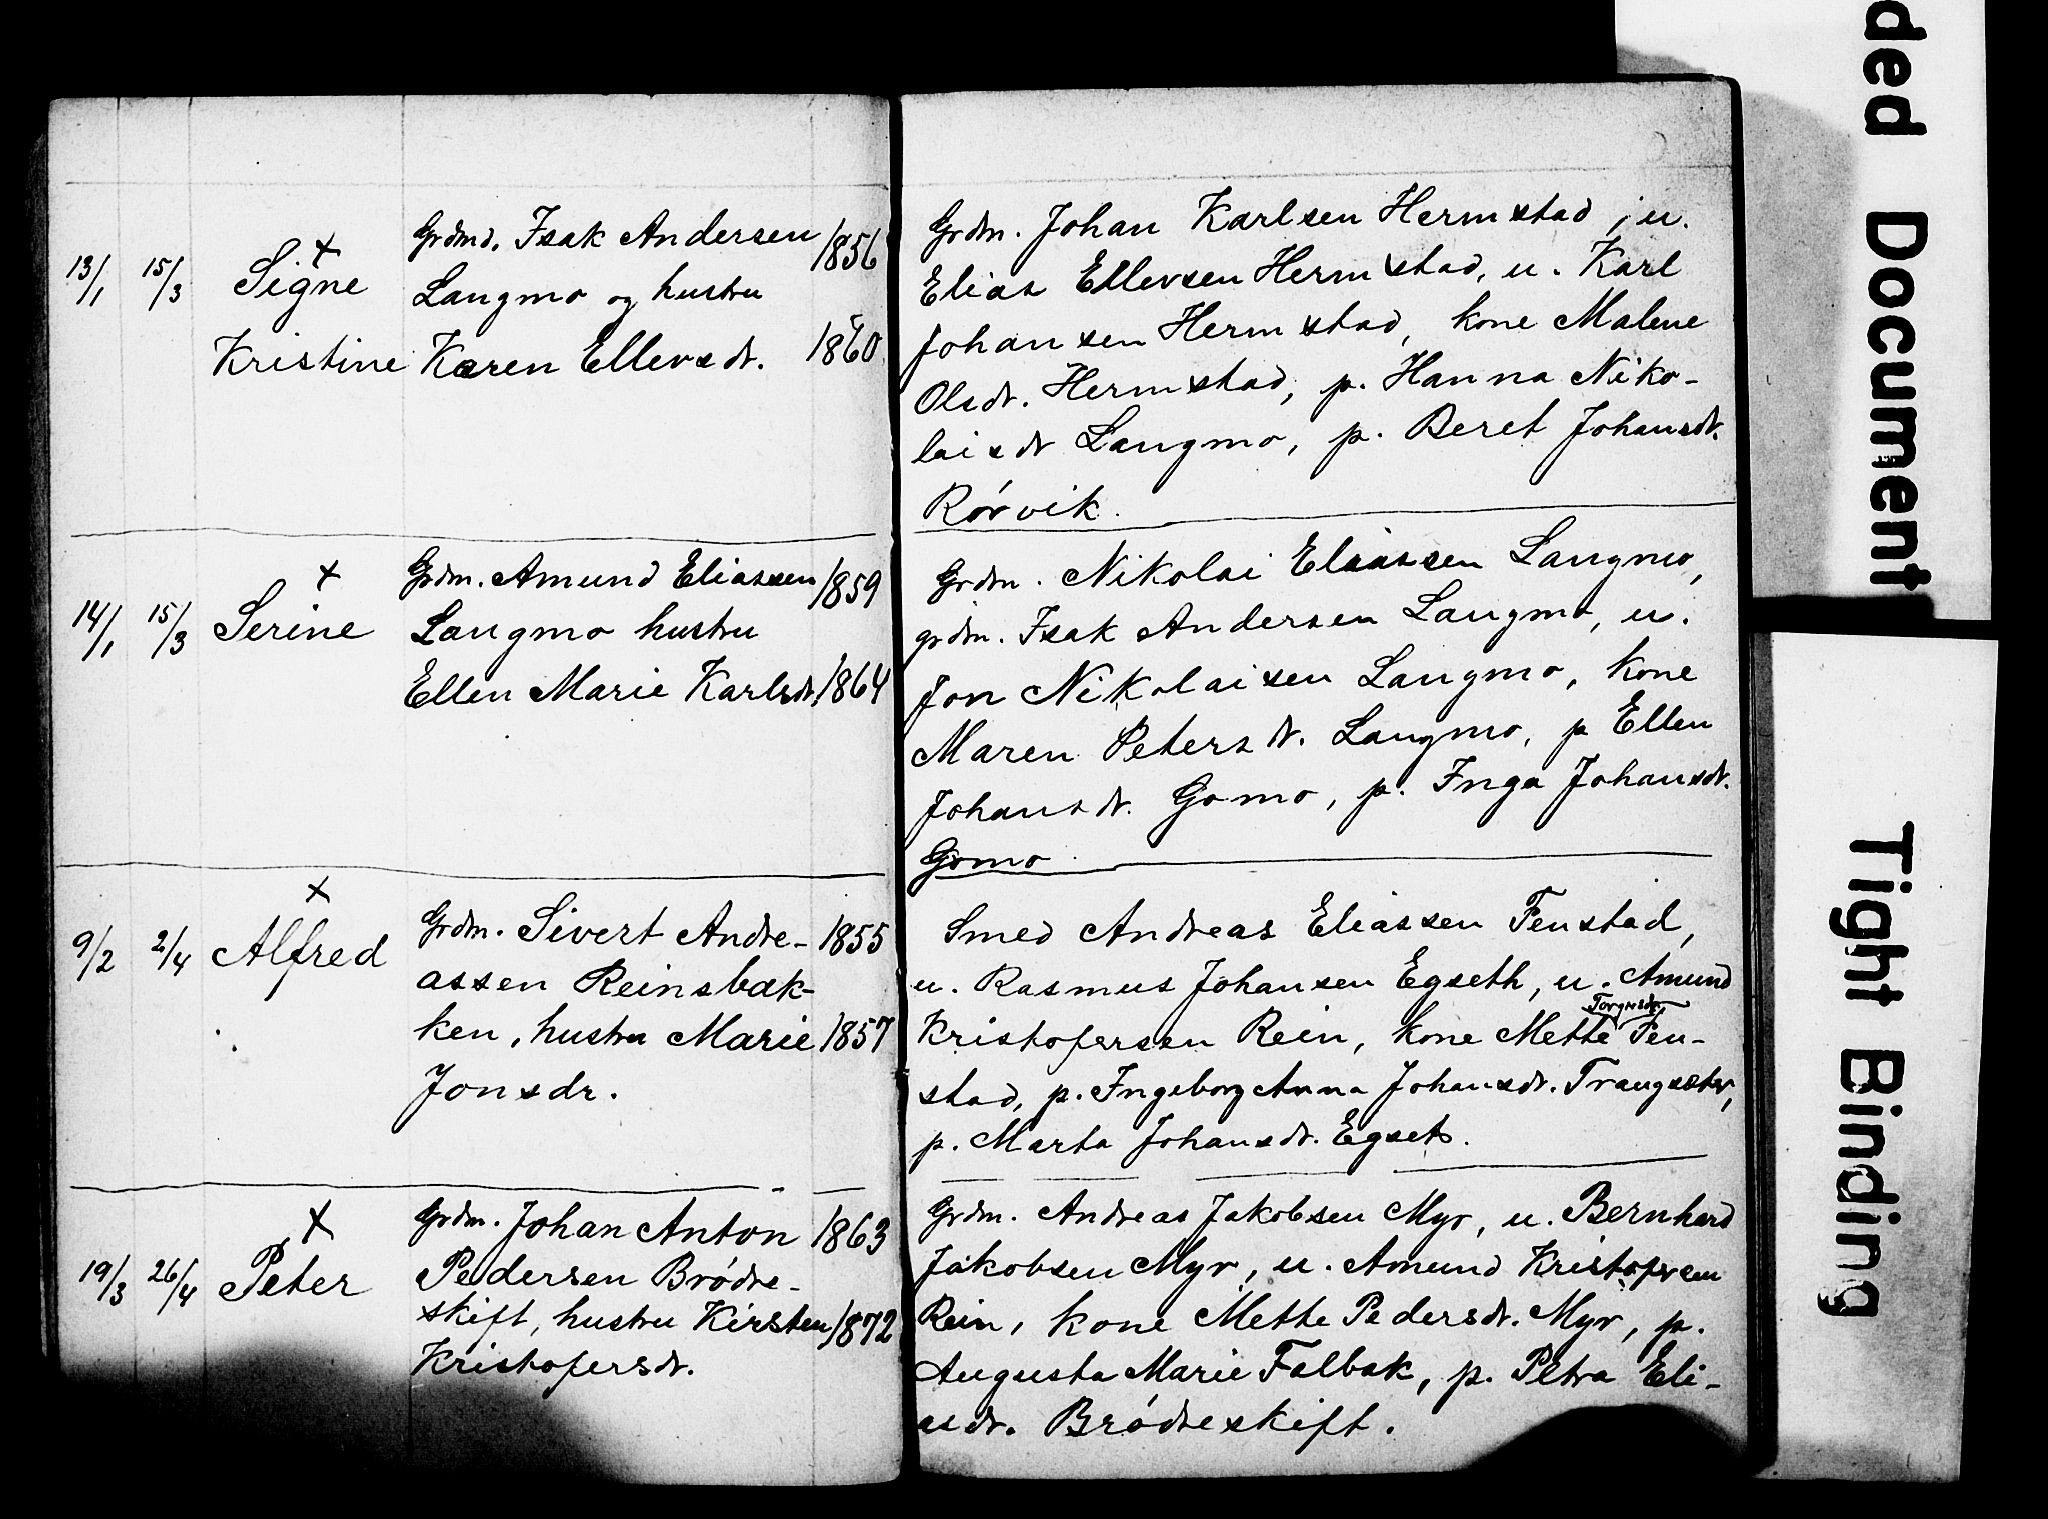 13/1 15/3 Signe
Kristine
Grdmd. Isak Andersen 1856
Langmo og hustru
Karen Ellevsdr. 1860
Grdm. Johan Karlsen Hermstad, u.
Elias Ellevsen Hermstad, u. Karl
Johansen Hermstad, kone Malene
Olsdr. Hermstad, p. Hanna Niko-
laisdr Langmo, p. Beret Johansdr.
Rørvik.
14/1 15/3 Serine
Grdm. Amund Eliassen 1859
Langmo hustru
Ellen Marie Karlsdr. 1864
Grdm. Nikolai Eliassen Langmo,
grdm. Isak Andersen Langmo, u.
Jon Nikolaisen Langmo, kone
Maren Petersdr. Langmo, p Ellen
Johansdr. Gomo, p. Inga Johansdr.
Gomo
9/2 2/4 Alfred
Grdm. Sivert Andre- 1855
assen Reinsbak-
ken, hustru Marie 1857
Jonsdr.
Smed Andreas Eliassen Fenstad,
u. Rasmus Johansen Egseth, u. Amund
Kristofersen Rein, kone Mette Fen-
stad, p. Ingeborg Anna Johansdr. Trangsæter,
p. Marta Johansdr. Egset.
19/3 26/4 Peter
Grdm. Johan Anton 1863
Pedersen Brødre-
skift, hustru Kirsten 1872
Kristofersdr.
Grdm. Andreas Jakobsen Myr, u. Bernhard
Jakobsen Myr, u. Amund Kristofersen
Rein, kone Mette Pedersdr. Myr, p.
Augusta Marie Falbak, p. Petra Eli-
asdr. Brødreskift.
ded Document
Tight Binding